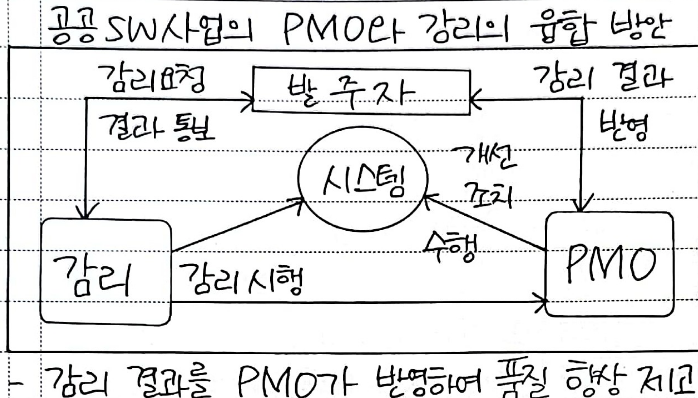 공공SW사업의 PMO와 감리의 융합 방안
감리요청
발주자
감리 결과
결과 통보
반영
시스템
개선
조치
감리
감리 시행
수행
PMO
- 감리 결과를 PMO가 반영하여 품질 향상 제고